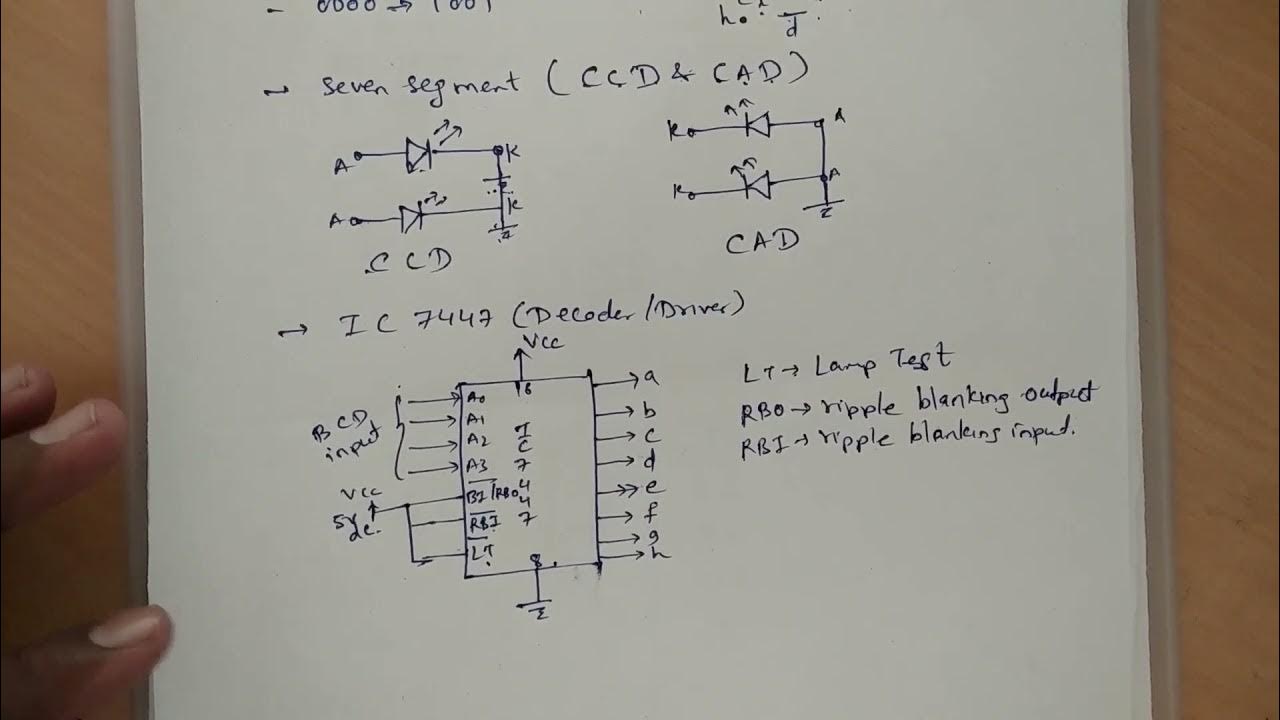 - 0000 → 1001
h d
→ Seven segment (CCD & CAD)
A K
A K
CCD
K A
K A
CAD
→ IC 7447 (Decoder/Driver)
Vcc
16
BCD input
A0
A1
A2
A3
BI/RBO
RBI
LT
Vcc
5V dc.
IC 7447
8
a
b
c
d
e
f
g
h
LT → Lamp Test
RBO → ripple blanking output
RBI → ripple blanking input.